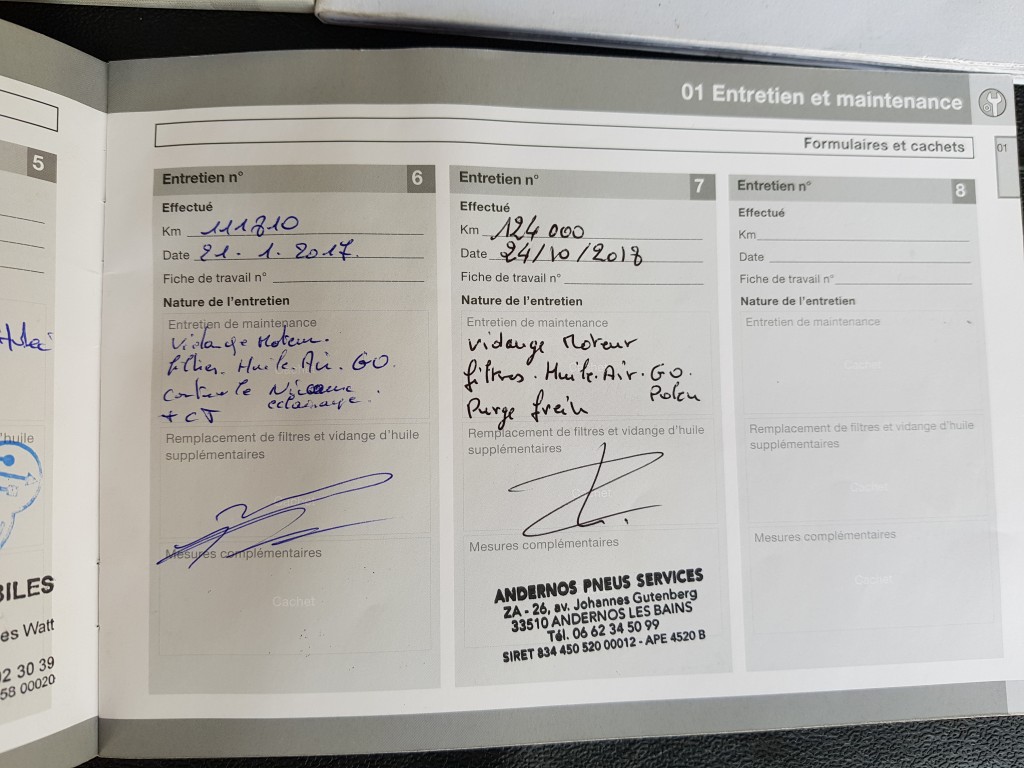 01 Entretien et maintenance
Formulaires et cachets
01
5
huile
BILES
es Watt
02 30 39
58 00020
Entretien n° 6
Effectué
Km 111810
Date 21. 1. 2017.
Fiche de travail n°
Nature de l'entretien
Entretien de maintenance
Vidange Moteur.
filtres. Huile. Air. GO.
controle Niveaux
eclairage.
+ CT
Remplacement de filtres et vidange d'huile
supplémentaires
Mesures complémentaires
Cachet
Entretien n° 7
Effectué
Km 124 000
Date 24/10/2018
Fiche de travail n°
Nature de l'entretien
Entretien de maintenance
Vidange Moteur
filtres. Huile. Air. GO.
Polen
Purge frein
Remplacement de filtres et vidange d'huile
supplémentaires
Cachet
Mesures complémentaires
ANDERNOS PNEUS SERVICES
ZA - 26, av. Johannes Gutenberg
33510 ANDERNOS LES BAINS
Tél. 06 62 34 50 99
SIRET 834 450 520 00012 - APE 4520 B
Entretien n° 8
Effectué
Km
Date
Fiche de travail n°
Nature de l'entretien
Entretien de maintenance
Cachet
Remplacement de filtres et vidange d'huile
supplémentaires
Cachet
Mesures complémentaires
Cachet